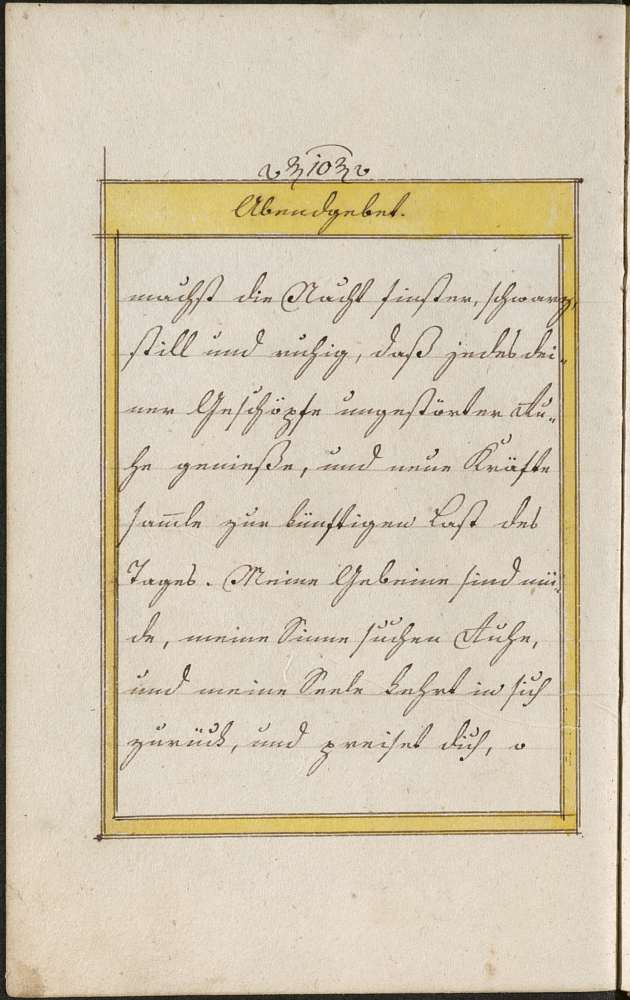 10
Abendgebet.
machst die Nacht finster, schwarz,
still und ruhig, daß jedes dei-
ner Geschöpfe ungestörter Ru-
he genieße, und neue Kräfte
sam̄le zur künftigen Last des
Tages. Meine Gebeine sind mü-
de, meine Sinne suchen Ruhe,
und meine Seele kehrt in sich
zurück, und preiset dich, o